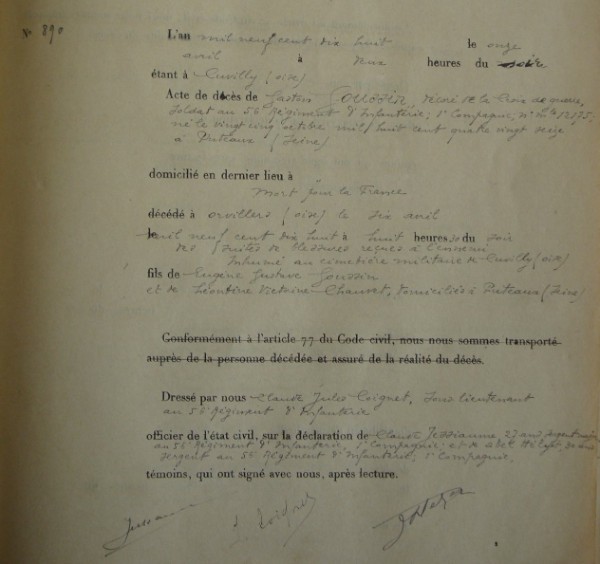 N° 890
L'an mil neuf cent dix huit le onze
avril à deux heures du soir
étant à Cuvilly (oise)
Acte de décès de Gaston Goussin, décoré de la Croix de guerre,
soldat au 56 Régiment d'Infanterie, 1e Compagnie, n° mle 12175,
né le vingt cinq octobre mil huit cent quatre vingt seize
à Puteaux (Seine)
domicilié en dernier lieu à
Mort pour la France
décédé à orvillers (oise) le six avril
le mil neuf cent dix huit à huit heures du soir
des suites de blessures reçues à l'ennemi
Inhumé au cimetière militaire de Cuvilly (oise)
fils de Eugène Gustave Goussin
et de Léontine Victorine Chauvet, domiciliés à Puteaux (Seine)
Conformément à l'article 77 du Code civil, nous nous sommes transporté
auprès de la personne décédée et assuré de la réalité du décès.
Dressé par nous Claude Jules Coignet, Sous lieutenant
au 56 Régiment d'Infanterie
officier de l'état civil, sur la déclaration de Claude 27 ans sergent major
au 56 Régiment d'Infanterie, Compagnie, et de
sergent au 56 Régiment d'Infanterie, Compagnie.
témoins, qui ont signé avec nous, après lecture.
J. Coignet